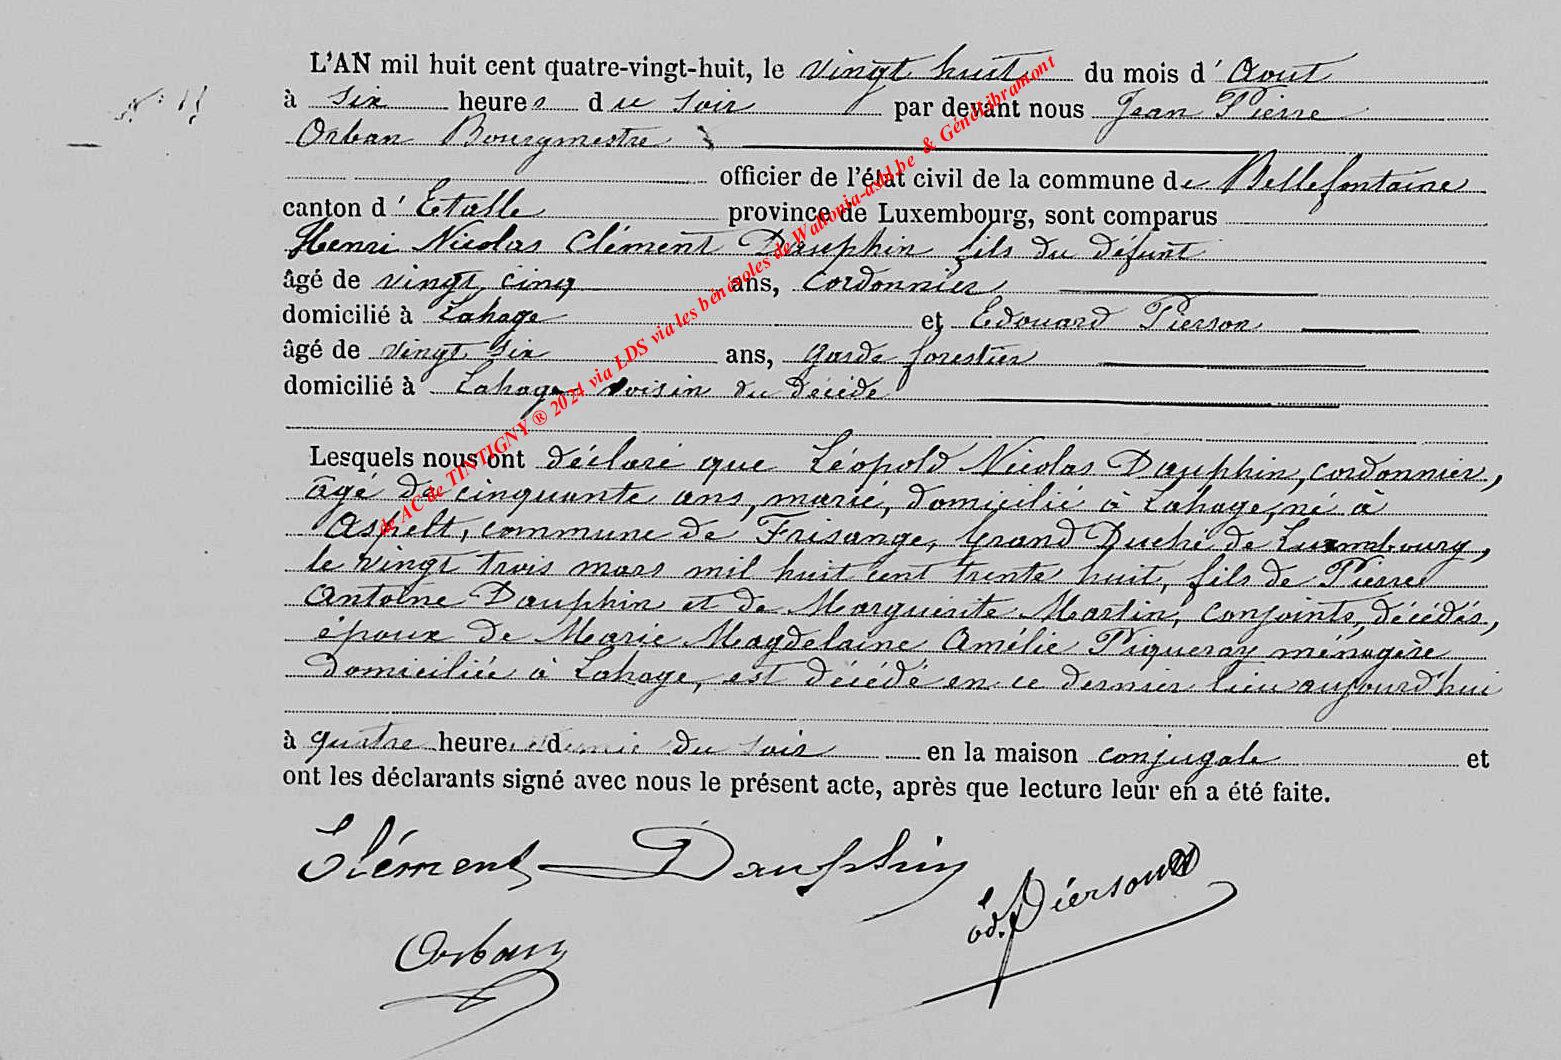 L'AN mil huit cent quatre-vingt-huit, le vingt huit du mois d' Aout
à six heures du soir par devant nous Jean Pierre
Orban Bourgmestre
officier de l'état civil de la commune de Bellefontaine
canton d' Etalle province de Luxembourg, sont comparus
Henri Nicolas Clément Dauphin fils du défunt
âgé de vingt cinq ans, cordonnier
domicilié à Lahage et Edouard Pierson
âgé de vingt six ans, garde forestier
domicilié à Lahage voisin du décédé
Lesquels nous ont déclaré que Léopold Nicolas Dauphin, cordonnier,
âgé de cinquante ans, marié, domicilié à Lahage, né à
Aspelt, commune de Frisange, Grand Duché de Luxembourg,
le vingt trois mars mil huit cent trente huit, fils de Pierre
Antoine Dauphin et de Marguerite Martin, conjoints, décédés,
époux de Marie Magdelaine Amélie Piqueray ménagère
domiciliée à Lahage, est décédé en ce dernier lieu aujourd'hui
à quatre heure et demie du soir en la maison conjugale et
ont les déclarants signé avec nous le présent acte, après que lecture leur en a été faite.
Clément Dauphin
Ed. Pierson
Orban
de AC de TINTIGNY ® 2024 via LDS via les bénévoles de Wallonia-asbl.be & GénéLibramont